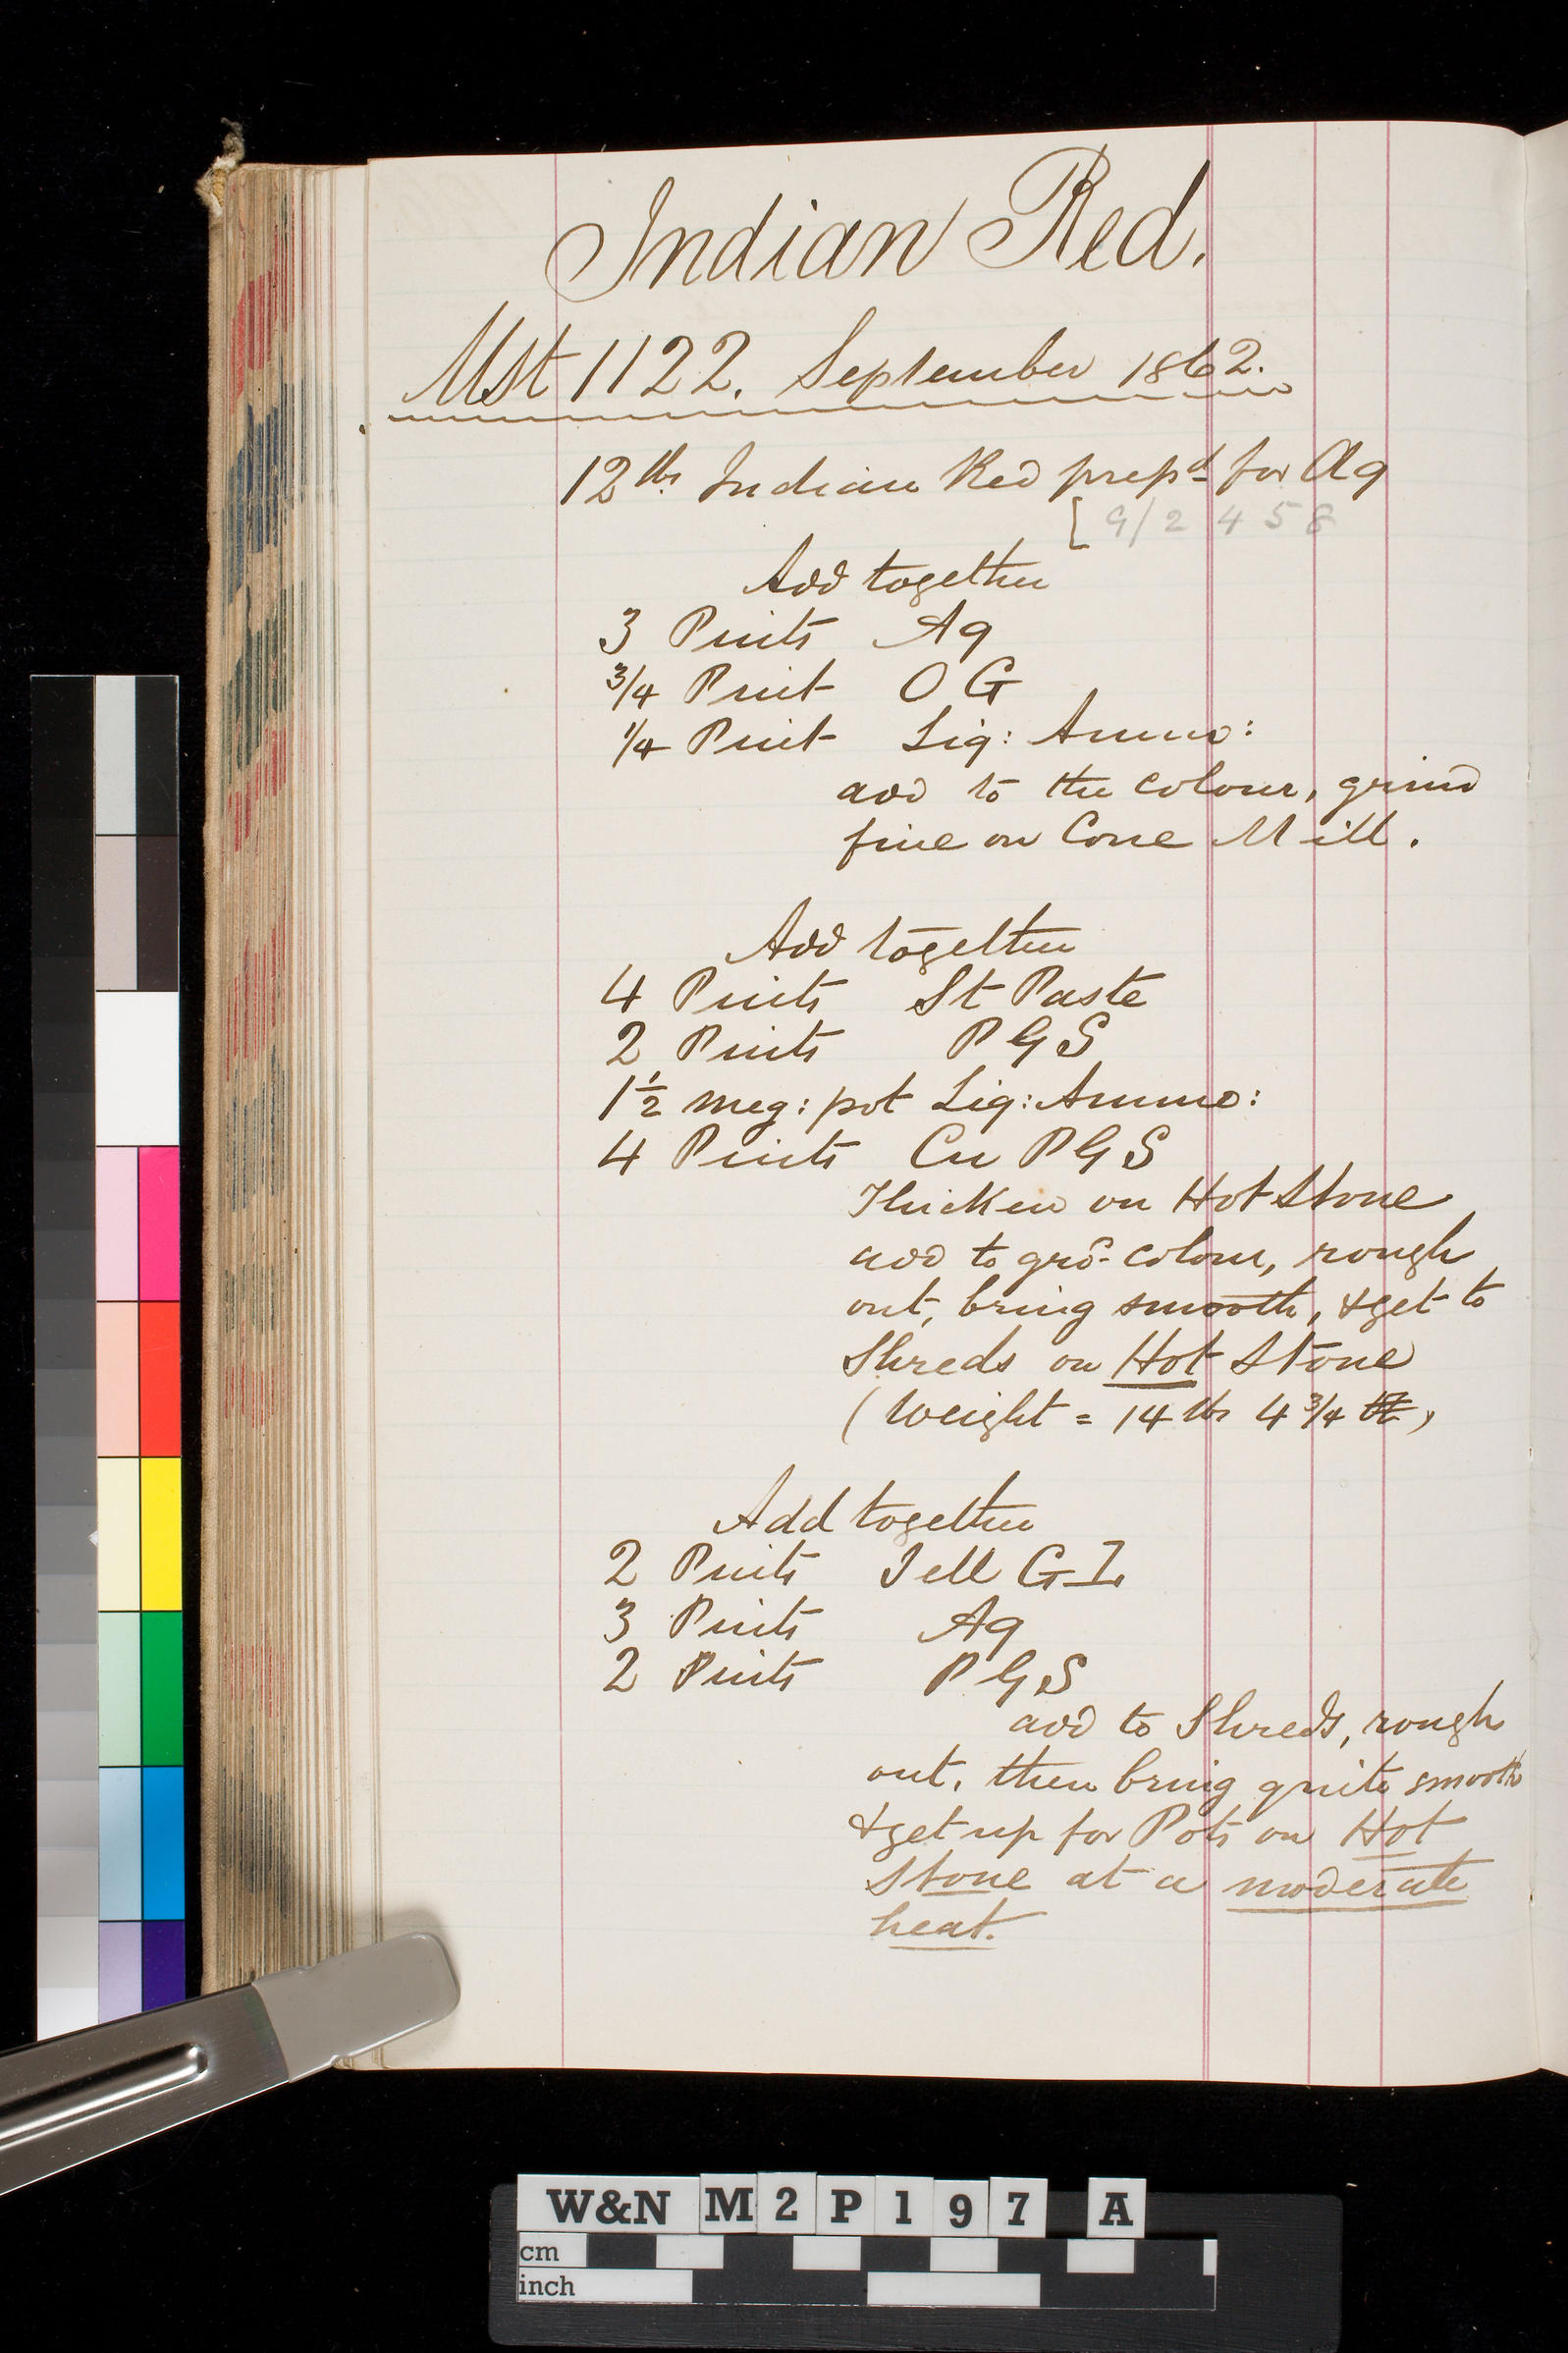 Indian Red.
Mst 1122. September 1862.
12 lbs Indian Red prepd for Aq
[ 9/2 4 5 8
Add together
3 Pints Aq
3/4 Pint O G
1/4 Pint Liq: Ammo:
add to the colour, grind
fine on Cone Mill.
Add together
4 Pints St Paste
2 Pints P G S
1 1/2 meg: pot Liq: Ammo:
4 Pints Cu P G S
Thicken on Hot Stone
add to grd colour, rough
out, bring smooth, & get to
Shreds on Hot Stone
(Weight = 14 lbs 4 3/4
Add together
2 Pints Jell G I
3 Pints Aq
2 Pints P G S
add to Shreds, rough
out, then bring quite smooth
& get up for Pots on Hot
Stone at a moderate
heat.
W&N M2P197 A
cm
inch